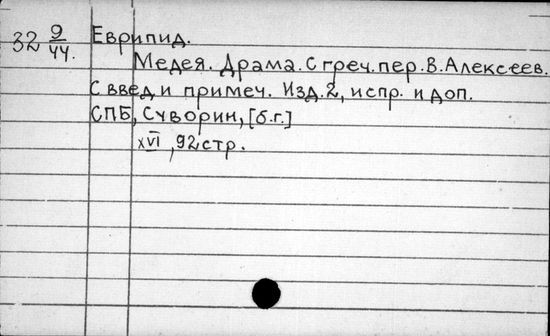 32 9/44. Еврипид.
Медея. Драма. С греч. пер. В. Алексеев.
С введ. и примеч. Изд. 2, испр. и доп.
СПБ, Суворин, [б.г.]
XVI, 92 стр.